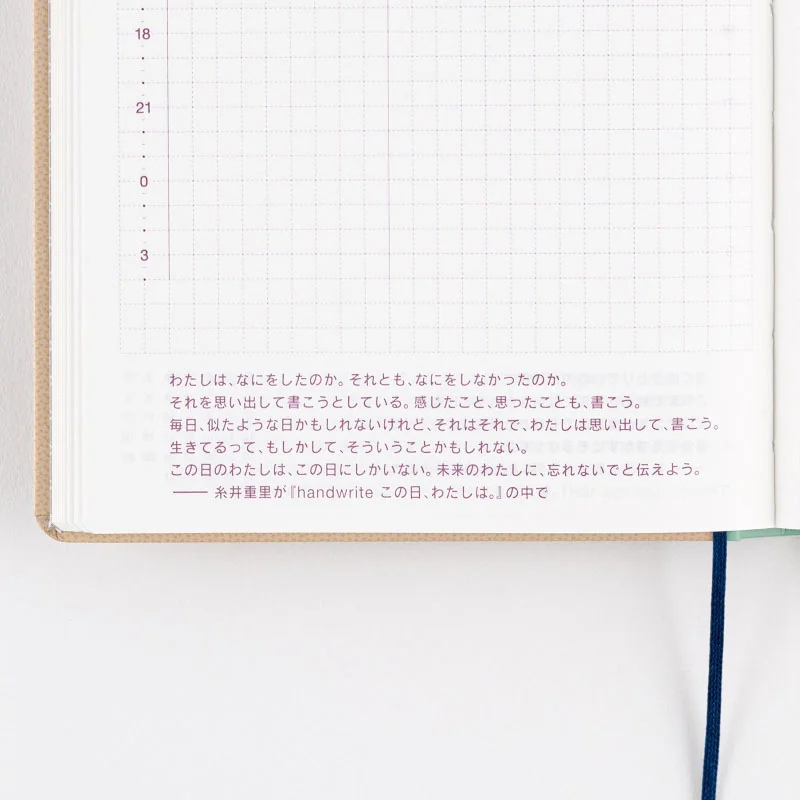 18
21
0
3
わたしは、なにをしたのか。それとも、なにをしなかったのか。
それを思い出して書こうとしている。感じたこと、思ったことも、書こう。
毎日、似たような日かもしれないけれど、それはそれで、わたしは思い出して、書こう。
生きてるって、もしかして、そういうことかもしれない。
この日のわたしは、この日にしかいない。未来のわたしに、忘れないでと伝えよう。
―― 糸井重里が『handwrite この日、わたしは。』の中で